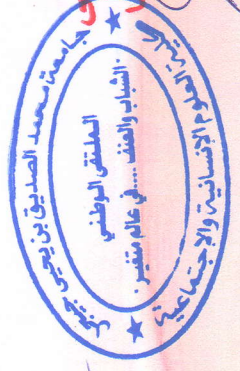 جامعة محمد الصديق بن يحيى جيجل
كلية العلوم الإنسانية والإجتماعية
الملتقى الوطني
الشباب والعنف .... في عالم متغير.